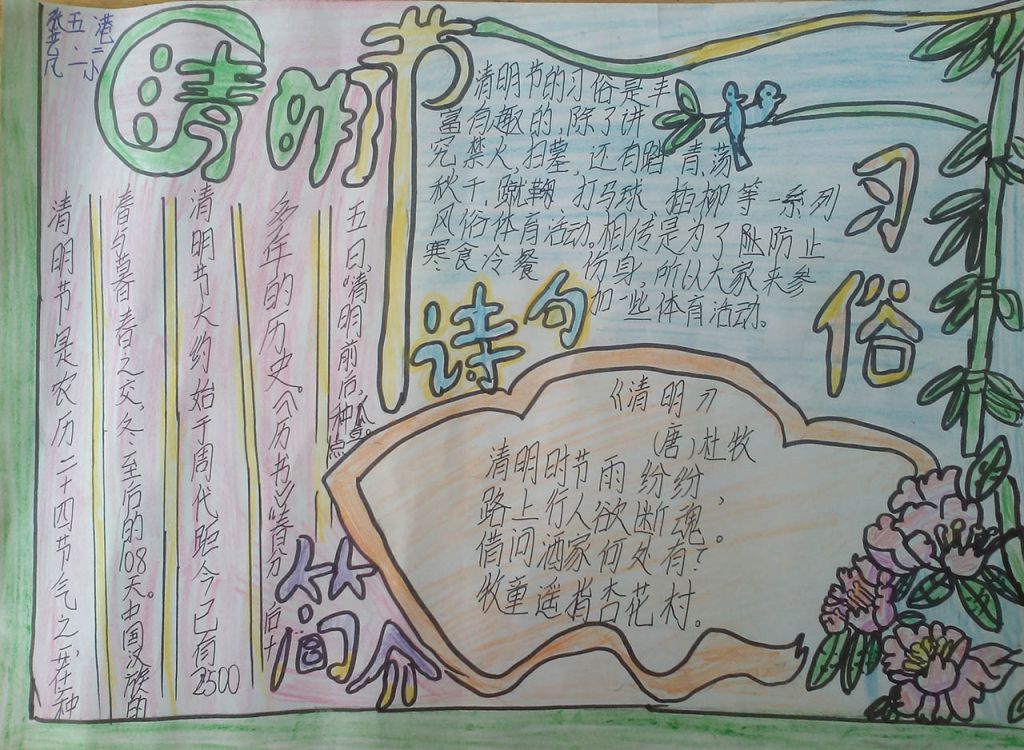 港二小
五.一
清明节
清明节是农历二十四节气之一,在种
春与暮春之交,冬至后的108天。中国汉族的
清明节大约始于周代距今已有2500
多年的历史。《历书 春分后十
五日,清明前后,种瓜
点豆。
简介
清明节的习俗是丰
富有趣的,除了讲
究禁火,扫墓,还有踏青荡
秋千,蹴鞠 打马球 插柳等一系列
风俗体育活动。相传是为了 防止
寒食冷餐 伤身,所以大家来参
加一些体育活动。
习俗
诗句
《清明》
(唐)杜牧
清明时节雨纷纷,
路上行人欲断魂。
借问酒家何处有?
牧童遥指杏花村。